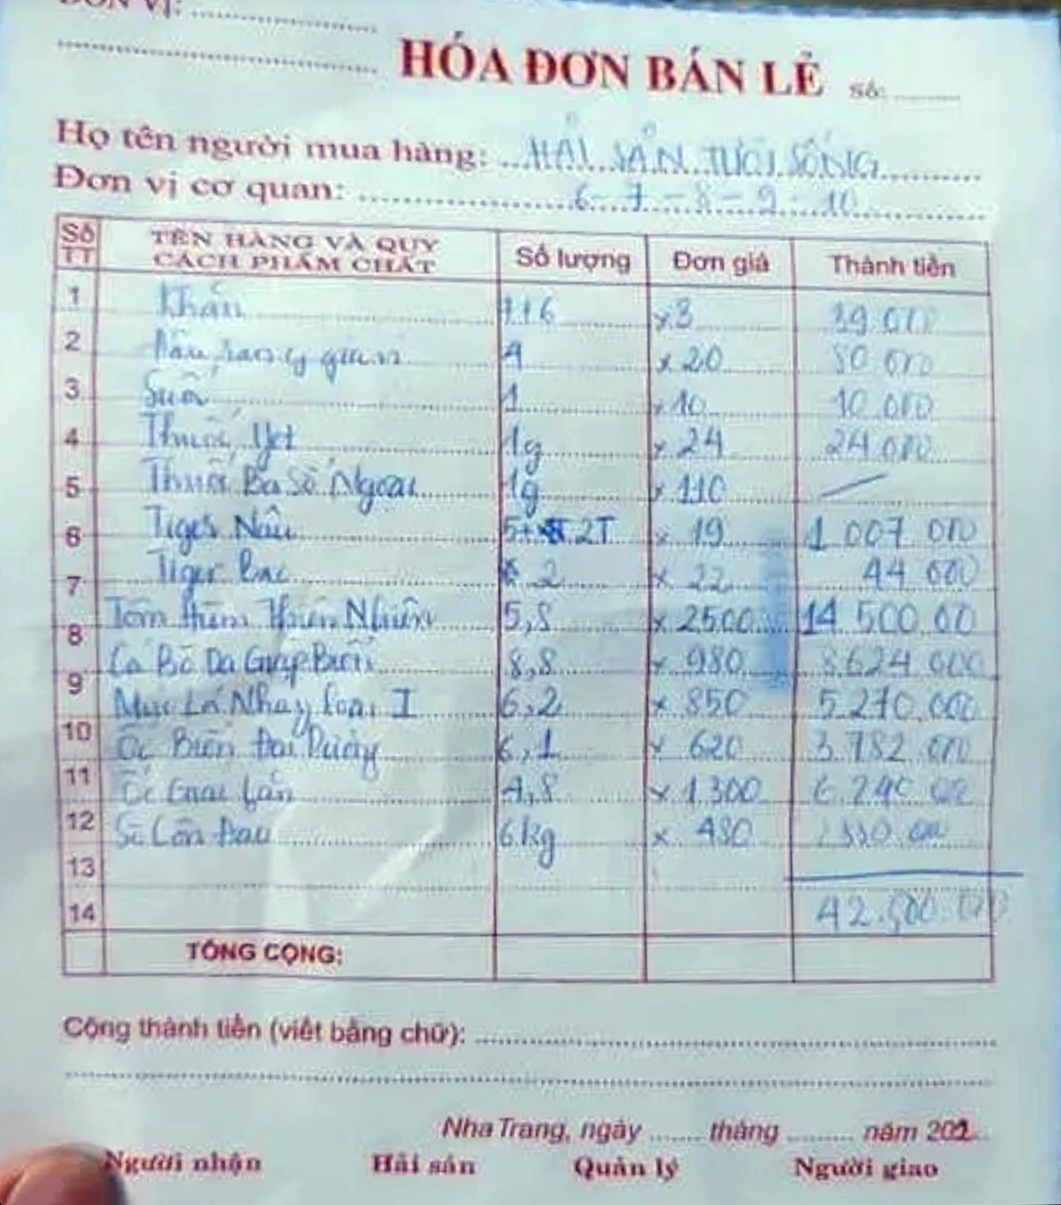 ĐƠN VỊ:
HÓA ĐƠN BÁN LẺ Số:
Họ tên người mua hàng: HẢI SẢN TƯƠI SỐNG
Đơn vị cơ quan: 6-7-8-9-10
Số TT TÊN HÀNG VÀ QUY CÁCH PHẨM CHẤT Số lượng Đơn giá Thành tiền
1 Khăn 7+6 x3 39.000
2 4 x 20 80 000
3 Suối 1 x 10 10.000
4 Thuốc Jet 1g x 24 24.000
5 Thuốc Ba Số Ngoại 1g x 110
6 Tiger Nâu 5+ 2T x 19 1 007 000
7 Tiger Bạc 2 x 22 44 000
8 Tôm Hùm Thiên Nhiên 5,8 x 2500 14 500.00
9 Cá Bò Da Giáp Biển 8,8 x 980 8 624 000
10 Mực Lá Nháy Loại I 6,2 x 850 5.270.000
11 Ốc Biển Đại Dương 6,1 x 620 3.782 000
12 Ốc Gai Lăn 4,8 x 1.300 6 240
13 Sò Lông 6kg x 480
14 42.500.000
TỔNG CỘNG:
Cộng thành tiền (viết bằng chữ):
Nha Trang, ngày tháng năm 202
Người nhận Hải sản Quản lý Người giao